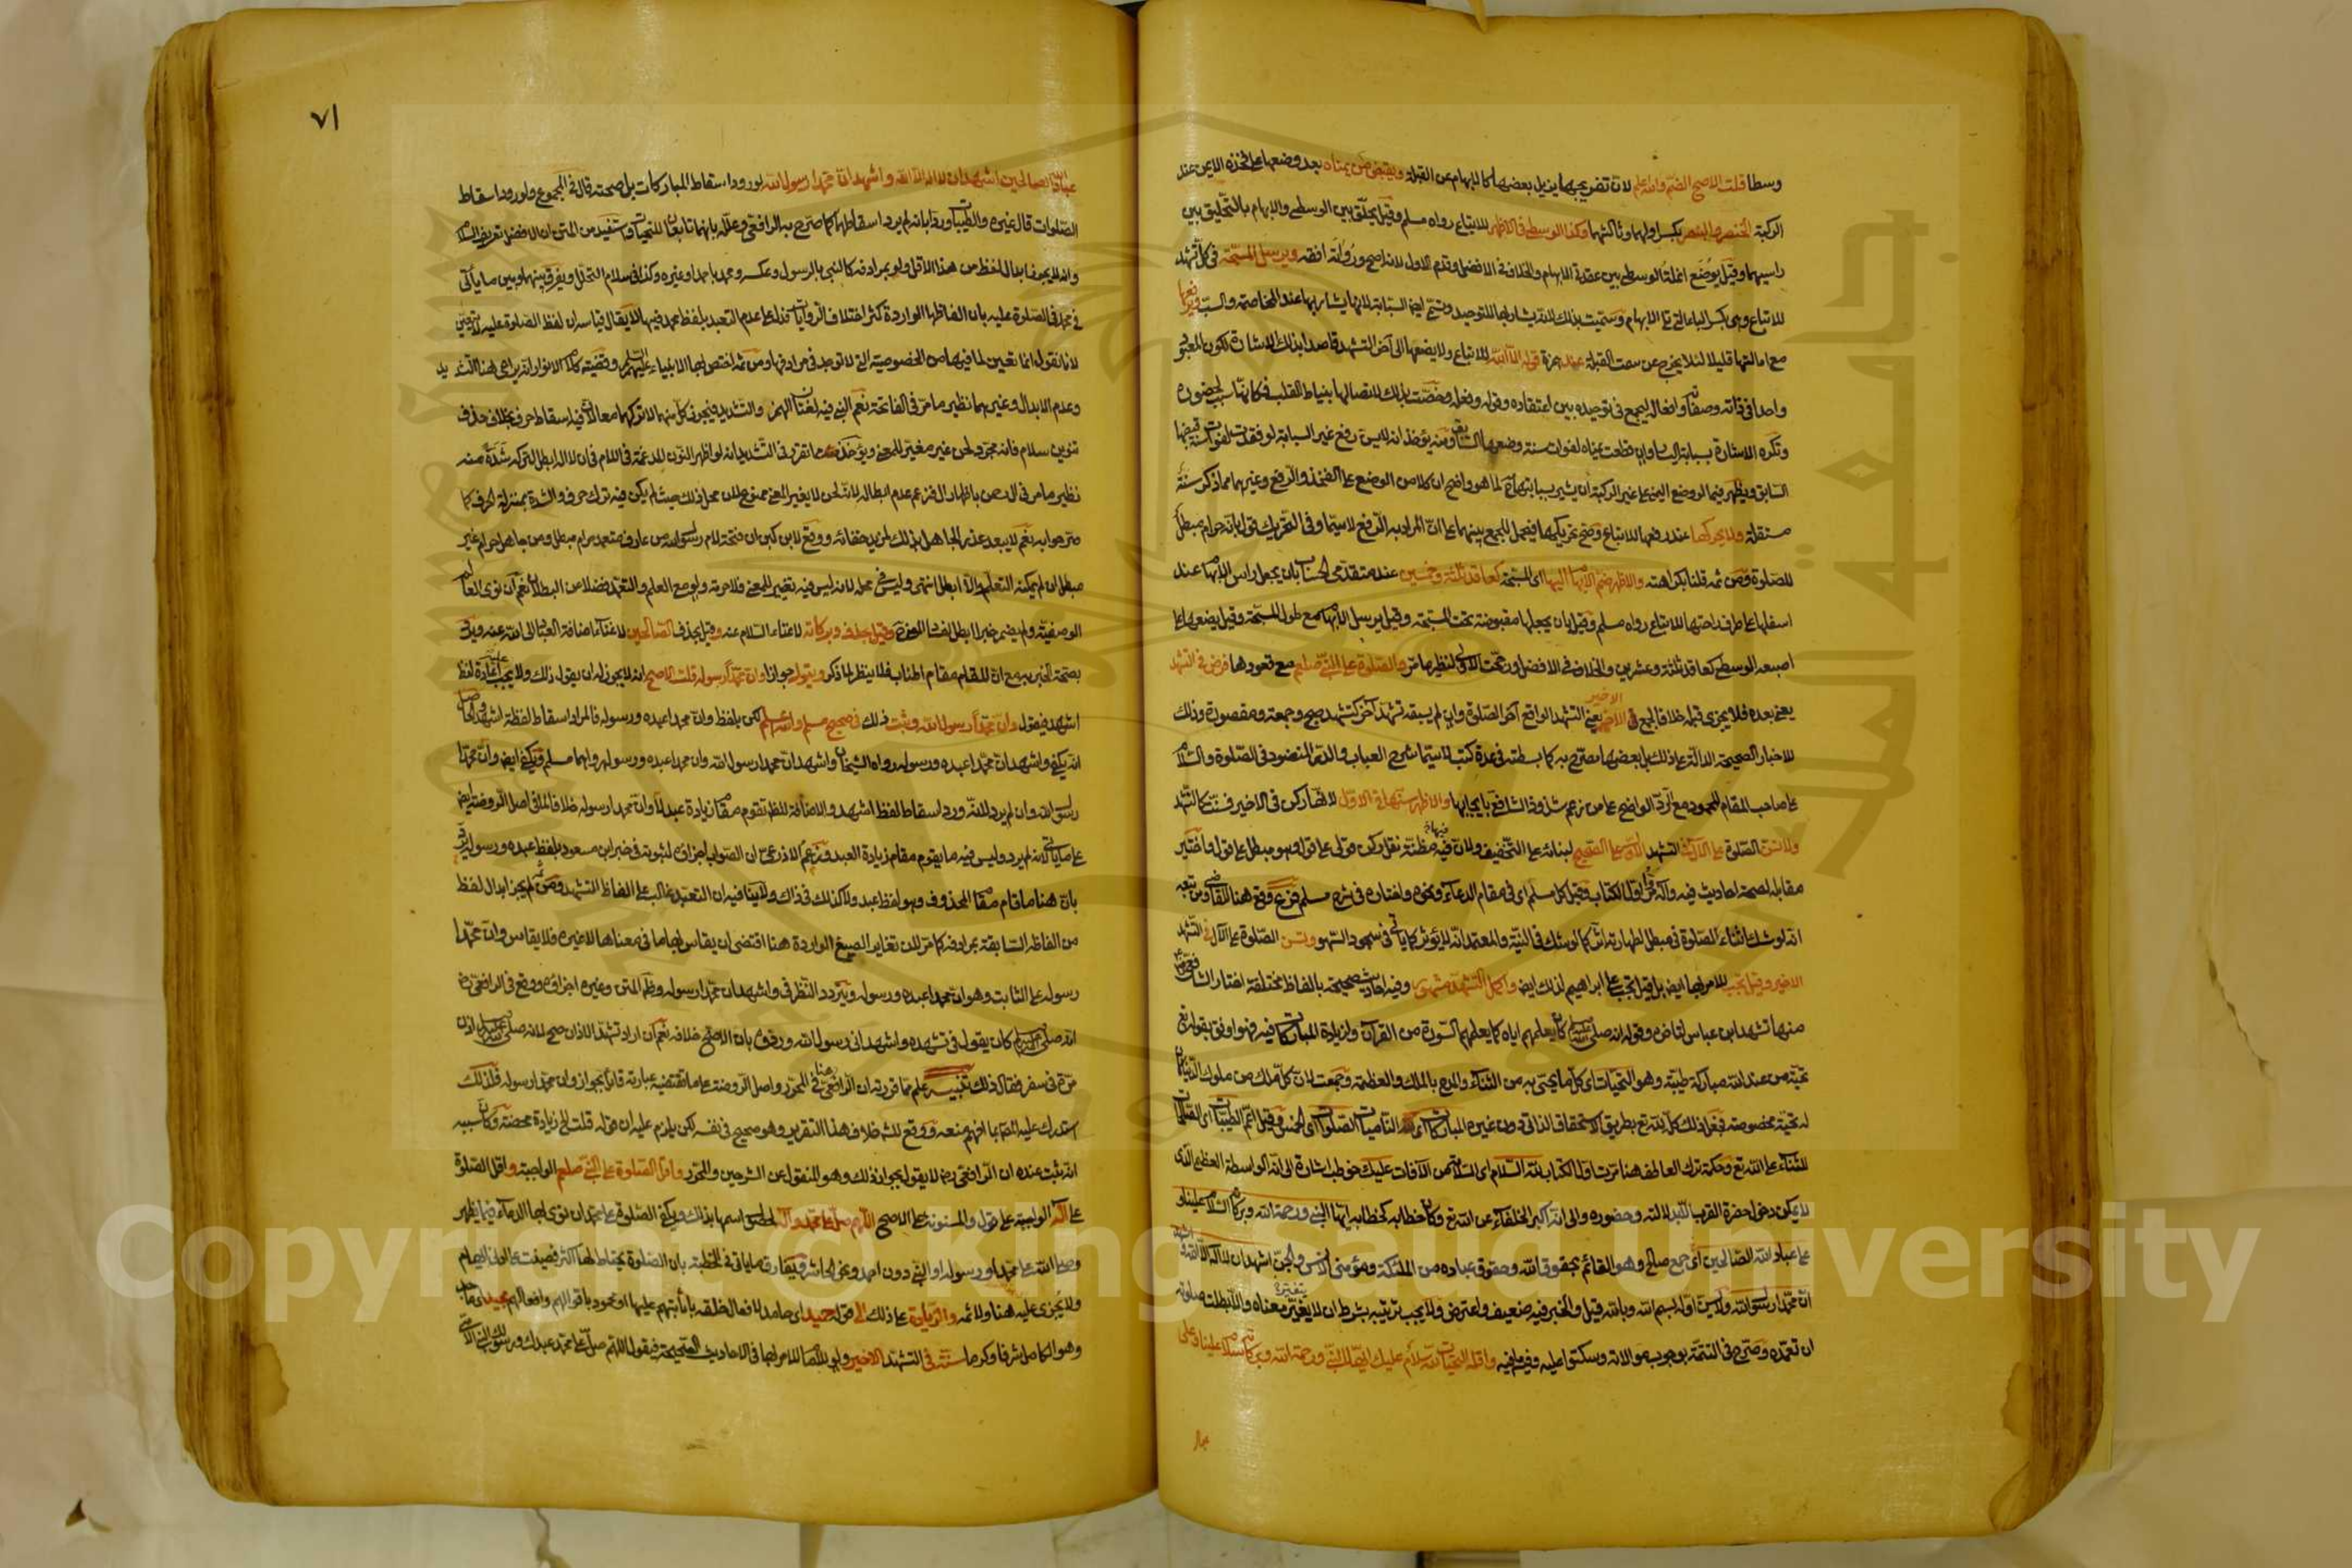 وسطا قلت الاصح الضم والله اعلم لان تفريجها يزيل بعضها كالابهام عن القبلة ويقبض من يمناه بعد وضعها على فخذه الايمن عند
الركبة الخنصر والبنصر بكسر اولهما وثالثهما وكذا الوسطى في الاظهر للاتباع رواه مسلم وقيل يحلق بين الوسطى والابهام بالتحليق بين
راسيهما وقيل بوضع انملة الوسطى بين عقدتي الابهام والخلاف في الافضل وقدم الاول لانه اصح ورواته افقه ويرسل المسبحة في كل تشهد
للاتباع وهي بكسر الباء التي تلي الابهام وسميت بذلك لانه يشار بها للتوحيد وتسمى ايضا السبابة لانها يشار بها عند المخاصمة والسب ويرفعها
مع امالتها قليلا لئلا يخرج عن سمت القبلة عند همزة قوله الا الله للاتباع ولا يضعها الى آخر التشهد قاصدا بذلك الاشارة لكون المعبود
واحدا في ذاته وصفاته وافعاله ليجمع في توحيده بين اعتقاده وقوله وفعله وخصت بذلك لاتصالها بنياط القلب فكانها سبب لحضوره
وتكره الاشارة بسبابة اليسار وان قطعت يمناه لفوات سنة وضعها السابق ومنه يؤخذ انه لا يسن رفع غير السبابة لو فقدت لفوات سنة قبضها
السابق ويظهر فيما لو وضع اليمنى على غير الركبة ان يشير بسبابتها لما هو واضح ان كلا من الوضع على الفخذ والرفع وغيرهما مما ذكر سنة
مستقلة ولا يحركها عند رفعها للاتباع وصح تحريكها فيحمل للجمع بينهما على ان المراد به الرفع لا سيما وفي التحريك قول بانه حرام مبطل
للصلوة ومن ثم قلنا بكراهته والاظهر ضم الابهام اليها اي المسبحة كعاقد ثلثة وخمسين عند متقدمي الحساب بان يجعل راس الابهام عند
اسفلها على طرف راحتها للاتباع رواه مسلم وقيل بان يجعلها مقبوضة تحت المسبحة وقيل يرسل الابهام مع طول المسبحة وقيل يضعها على
اصبعه الوسطى كعاقد ثلثة وعشرين والخلاف في الافضل ورجحت الاولى لنظير ما مر والصلوة على النبي صلعم مع قعودها فرض في التشهد
يعني بعده فلا يجزي قبله خلافا لجمع في الاخير يعني التشهد الواقع آخر الصلوة وان لم يسبقه تشهد آخر كتشهد صبح وجمعة ومقصورة وذلك
للاخبار الصحيحة الدالة على ذلك بل بعضها مصرح به كما بسطته في عدة كتب لا سيما شرح العباب والدر المنضود في الصلوة والسلام
على صاحب المقام المحمود مع الرد الواضح على من زعم شذوذ الشافعي بايجابها والاظهر سنها في الاول لانها ركن في الاخير فسنت كالتشهد
ولا تسن الصلوة على الآل في التشهد الاول على الصحيح لبنائه على التخفيف ولان فيها نقل ركن قولي على قول وهو مبطل على قول واختير
مقابله لصحة احاديث فيه وآله مر اول الكتاب وقيل كل مسلم اي في مقام الدعاء ونحوه واختاره في شرح مسلم فرع وقع هنا للقاضي ومن تبعه
انه لو شك اثناء الصلوة في مبطل لطهارته اثر كما لو شك في النية والمعتمد انه لا يؤثر كما ياتي في سجود السهو وتسن الصلوة على الآل في التشهد
الاخير وقيل تجب للامر بها ايضا بل قيل تجب على ابراهيم لذلك ايضا واكمل التشهد مشهور وفيه احاديث صحيحة بالفاظ مختلفة اختار الشافعي
منها تشهد ابن عباس لتاخره وقوله انه صلى الله عليه وسلم كان يعلمهم اياه كما يعلمهم السورة من القرآن ولزيادة المباركات فيه فهو اوفق بقوله تعالى
تحية من عند الله مباركة طيبة وهو التحيات اي كل ما يحيى به من الثناء والمدح بالملك والعظمة وجمعت لان كل ملك من ملوك الدنيا كان
له تحية مخصوصة فجعل ذلك كله لله تعالى بطريق الاستحقاق الذاتي دون غيره المباركات اي الناميات الصلوات اي الخمس وقيل اعم الطيبات اي الصالحات
للثناء على الله تعالى وحكمة ترك العاطف هنا مرت اول الكتاب لله السلام اي السلامة من الآفات عليك خوطب اشارة الى انه الواسطة العظمى الذي
لا يمكن دخول حضرة القرب الا بدلالته وحضوره والى انه اكبر الخلفاء عن الله تعالى فكان خطابه كخطابه ايها النبي ورحمة الله وبركاته السلام علينا و
على عباد الله الصالحين اي جمع صالح وهو القائم بحقوق الله وحقوق عباده من الملئكة ومؤمني الانس والجن اشهد ان لا اله الا الله واشهد
ان محمدا رسول الله ولا يسن اوله بسم الله وبالله قيل والخبر فيه ضعيف واعترض ولا يجب ترتيبه بشرط ان لا يغير معناه والا بطلت صلوته
ان تعمده وصرح في التتمة بوجوب موالاته وسكتوا عليه وفيه ما فيه واقله التحيات لله سلام عليك ايها النبي ورحمة الله وبركاته سلام علينا وعلى
٧١
عباد الله الصالحين اشهد ان لا اله الا الله واشهد ان محمدا رسول الله لورود اسقاط المباركات بل صحته قال في المجموع ولورود اسقاط
الصلوات قال غيره والطيبات ورد بانه لم يرد اسقاطها كما صرح به الرافعي وعلله بانهما تابعان للتحيات واستفيد من المتن ان الافضل تعريف السلام
وانه لا يجوز ابدال لفظ من هذا الاقل ولو بمرادفه كالنبي بالرسول وعكسه ومحمد باحمد او غيره وكذا في سلام التحلل ويفرق بينها وبين ما ياتي
في محمد في الصلوة عليه بان الفاظها الواردة كثر اختلاف الروايات فدل على عدم التعبد بلفظ محمد فيها لا يقال قياسه ان لفظ الصلوة عليه لا يتعين
لانا نقول انما تعين لما فيها من الخصوصية التي لا توجد في مرادفها ومن ثم اختص بها الانبياء عليهم السلام وقضية كلام الانوار انه يراعى هنا التشديد
وعدم الابدال وغيرهما نظير ما مر في الفاتحة نعم النبي فيه لغتان الهمز والتشديد فيجوز كل منهما لا تركهما معا لان فيه اسقاط حرف بخلاف حذف
تنوين سلام فانه مجرد لحن غير مغير للمعنى ويؤخذ مما تقرر في التشديد انه لو اظهر النون المدغمة في اللام في ان لا اله ابطل لتركه شدة منه
نظير ما مر في الرحمن باظهار ال فزعم عدم ابطاله لانه لحن لا يغير المعنى ممنوع لان محل ذلك حيث لم يكن فيه ترك حرف والشدة بمنزلة الحرف كما
صرحوا به نعم لا يبعد عذر الجاهل بذلك لمزيد خفائه ووقع لابن كبن ان فتحة لام رسول الله من عارف متعمد حرام مبطل ومن جاهل حرام غير
مبطل ان لم يمكنه التعلم والا ابطل انتهى وليس في محله لانه ليس فيه تغيير للمعنى فلا حرمة ولو مع العلم والتعمد فضلا عن البطلان نعم ان نوى العالم
الوصفية ولم يضمر خبرا ابطل لفساد المعنى وقيل يحذف وبركاته لاغناء السلام عنه وقيل يحذف الصالحين لاغناء اضافة العباد الى الله عنه ويرد
بصحة الخبر به مع ان المقام مقام اطناب فلا ينظر لما ذكر ويقول جوازا وان محمدا رسوله قلت الاصح انه لا يجوز له ان يقول ذلك ولا يجب اعادة لفظ
اشهد فيقول وان محمدا رسول الله وثبت ذلك في صحيح مسلم والله اعلم لكن بلفظ وان محمدا عبده ورسوله فالمراد اسقاط لفظة اشهد والحاصل
انه يكفي واشهد ان محمدا عبده ورسوله رواه الشيخان واشهد ان محمدا رسول الله وان محمدا عبده ورسوله رواهما مسلم ويكفي ايضا وان محمدا
رسول الله وان لم يرد لانه ورد اسقاط لفظ اشهد والاضافة للظاهر تقوم مقام زيادة عبد لا وان محمدا رسوله خلافا لما في اصل الروضة ايضا
على ما ياتي لانه لم يرد وليس فيه ما يقوم مقام زيادة العبد وزعم الاذرعي ان الصواب اجزاؤه لثبوته في خبر ابن مسعود بلفظ عبده ورسوله يرد
بان هنا ما قام مقام المحذوف وهو لفظ عبد ولا كذلك في ذاك ولا ينافيه ان التعبد غالب على الفاظ التشهد ومن ثم لم يجز ابدال لفظ
من الفاظه السابقة بمرادفه كما مر لان تغاير الصيغ الواردة هنا اقتضى ان يقاس بها ما في معناها لا غيره فلا يقاس وان محمدا
رسوله على الثابت وهو ان محمدا عبده ورسوله ويتردد النظر في واشهد ان محمدا رسوله وظاهر المتن وغيره اجزاؤه ووقع في الرافعي
انه صلى الله عليه وسلم كان يقول في تشهده واشهد اني رسول الله وردوه بان الاصح خلافه نعم ان اراد تشهد الاذان صح لانه صلى الله عليه وسلم اذن
مرة في سفر فقال ذلك تنبيه علم مما قررته ان الرافعي هنا في المحرر واصل الروضة على ما تقتضيه عبارته قائل بجواز وان محمدا رسوله فلذلك
استدرك عليه المصنف بما افهم منعه ووقع للشارح خلاف هذا التقرير وهو صحيح في نفسه لكن يلزم عليه ان قوله قلت الخ زيادة محضة وكان سببه
انه ثبت عنده ان الرافعي هنا لا يقول بجواز ذلك وهو المنقول عن الشرحين والمحرر واقل الصلوة على النبي صلعم الواجبة واقل الصلوة
على الآل الواجبة على قول والمسنونة على الاصح اللهم صل على محمد وآله لحصول اسمها بذلك ويكفي الصلوة على محمد ان نوى بها الدعاء فيما يظهر
وصلى الله على محمد او رسوله او النبي دون احمد ونحو الحاشر ويفارق ما ياتي في الخطبة بان الصلوة يحتاط لها اكثر فصينت عما فيه ايهام
ولا يجزئ عليه هنا ولا ثم والزيادة على ذلك الى قوله حميد اي حامد لافعال خلقه باثابتهم عليها او محمود باقوالهم وافعالهم مجيد اي ماجد
وهو الكامل شرفا وكرما سنة في التشهد الاخير للامر بها في الاحاديث الصحيحة فيقول اللهم صل على محمد عبدك ورسولك النبي الامي
Copyright © King Saud University